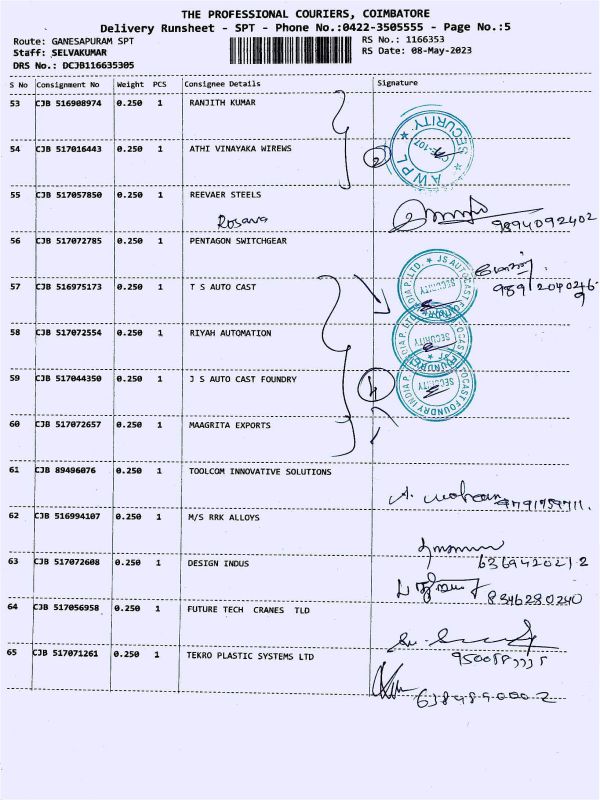 THE PROFESSIONAL COURIERS, COIMBATORE
Delivery Runsheet - SPT - Phone No.:0422-3505555 - Page No.:5
Route: GANESAPURAM SPT
RS No.: 1166353
Staff: SELVAKUMAR
RS Date: 08-May-2023
DRS No.: DCJB116635305
S No Consignment No Weight PCS Consignee Details Signature
53 CJB 516908974 0.250 1 RANJITH KUMAR
54 CJB 517016443 0.250 1 ATHI VINAYAKA WIREWS
SECURITY
A W P L
55 CJB 517057850 0.250 1 REEVAER STEELS
9894092402
56 CJB 517072785 0.250 1 PENTAGON SWITCHGEAR
57 CJB 516975173 0.250 1 T S AUTO CAST
58 CJB 517072554 0.250 1 RIYAH AUTOMATION
59 CJB 517044350 0.250 1 J S AUTO CAST FOUNDRY
JS AUTOCAST FOUNDRY INDIA P. LTD.
SECURITY
60 CJB 517072657 0.250 1 MAAGRITA EXPORTS
61 CJB 89496076 0.250 1 TOOLCOM INNOVATIVE SOLUTIONS
A. Mohan
9791759711.
62 CJB 516994107 0.250 1 M/S RRK ALLOYS
6369420212
63 CJB 517072608 0.250 1 DESIGN INDUS
8346280240
64 CJB 517056958 0.250 1 FUTURE TECH CRANES TLD
65 CJB 517071261 0.250 1 TEKRO PLASTIC SYSTEMS LTD